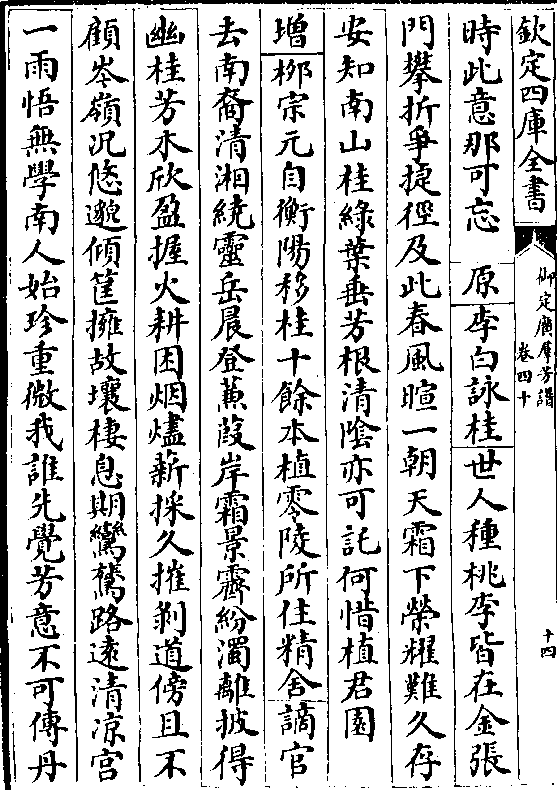 欽定四庫全書
御定廣羣芳譜
卷四十
十四
時此意那可忘　原李白詠桂世人種桃李皆在金張
門攀折爭捷徑及此春風暄一朝天霜下榮耀難久存
安知南山桂綠葉垂芳根清陰亦可託何惜植君園
增栁宗元自衡陽移桂十餘本植零陵所住精舍謫官
去南裔清湘繞靈岳晨登蒹葭岸霜景霽紛濁離披得
幽桂芳木欣盈握火耕困烟燼薪採久摧剝道傍且不
顧岑嶺況悠邈傾筐擁故壤棲息期鸞鷟路遠清涼宮
一雨悟無學南人始珍重微我誰先覺芳意不可傳丹